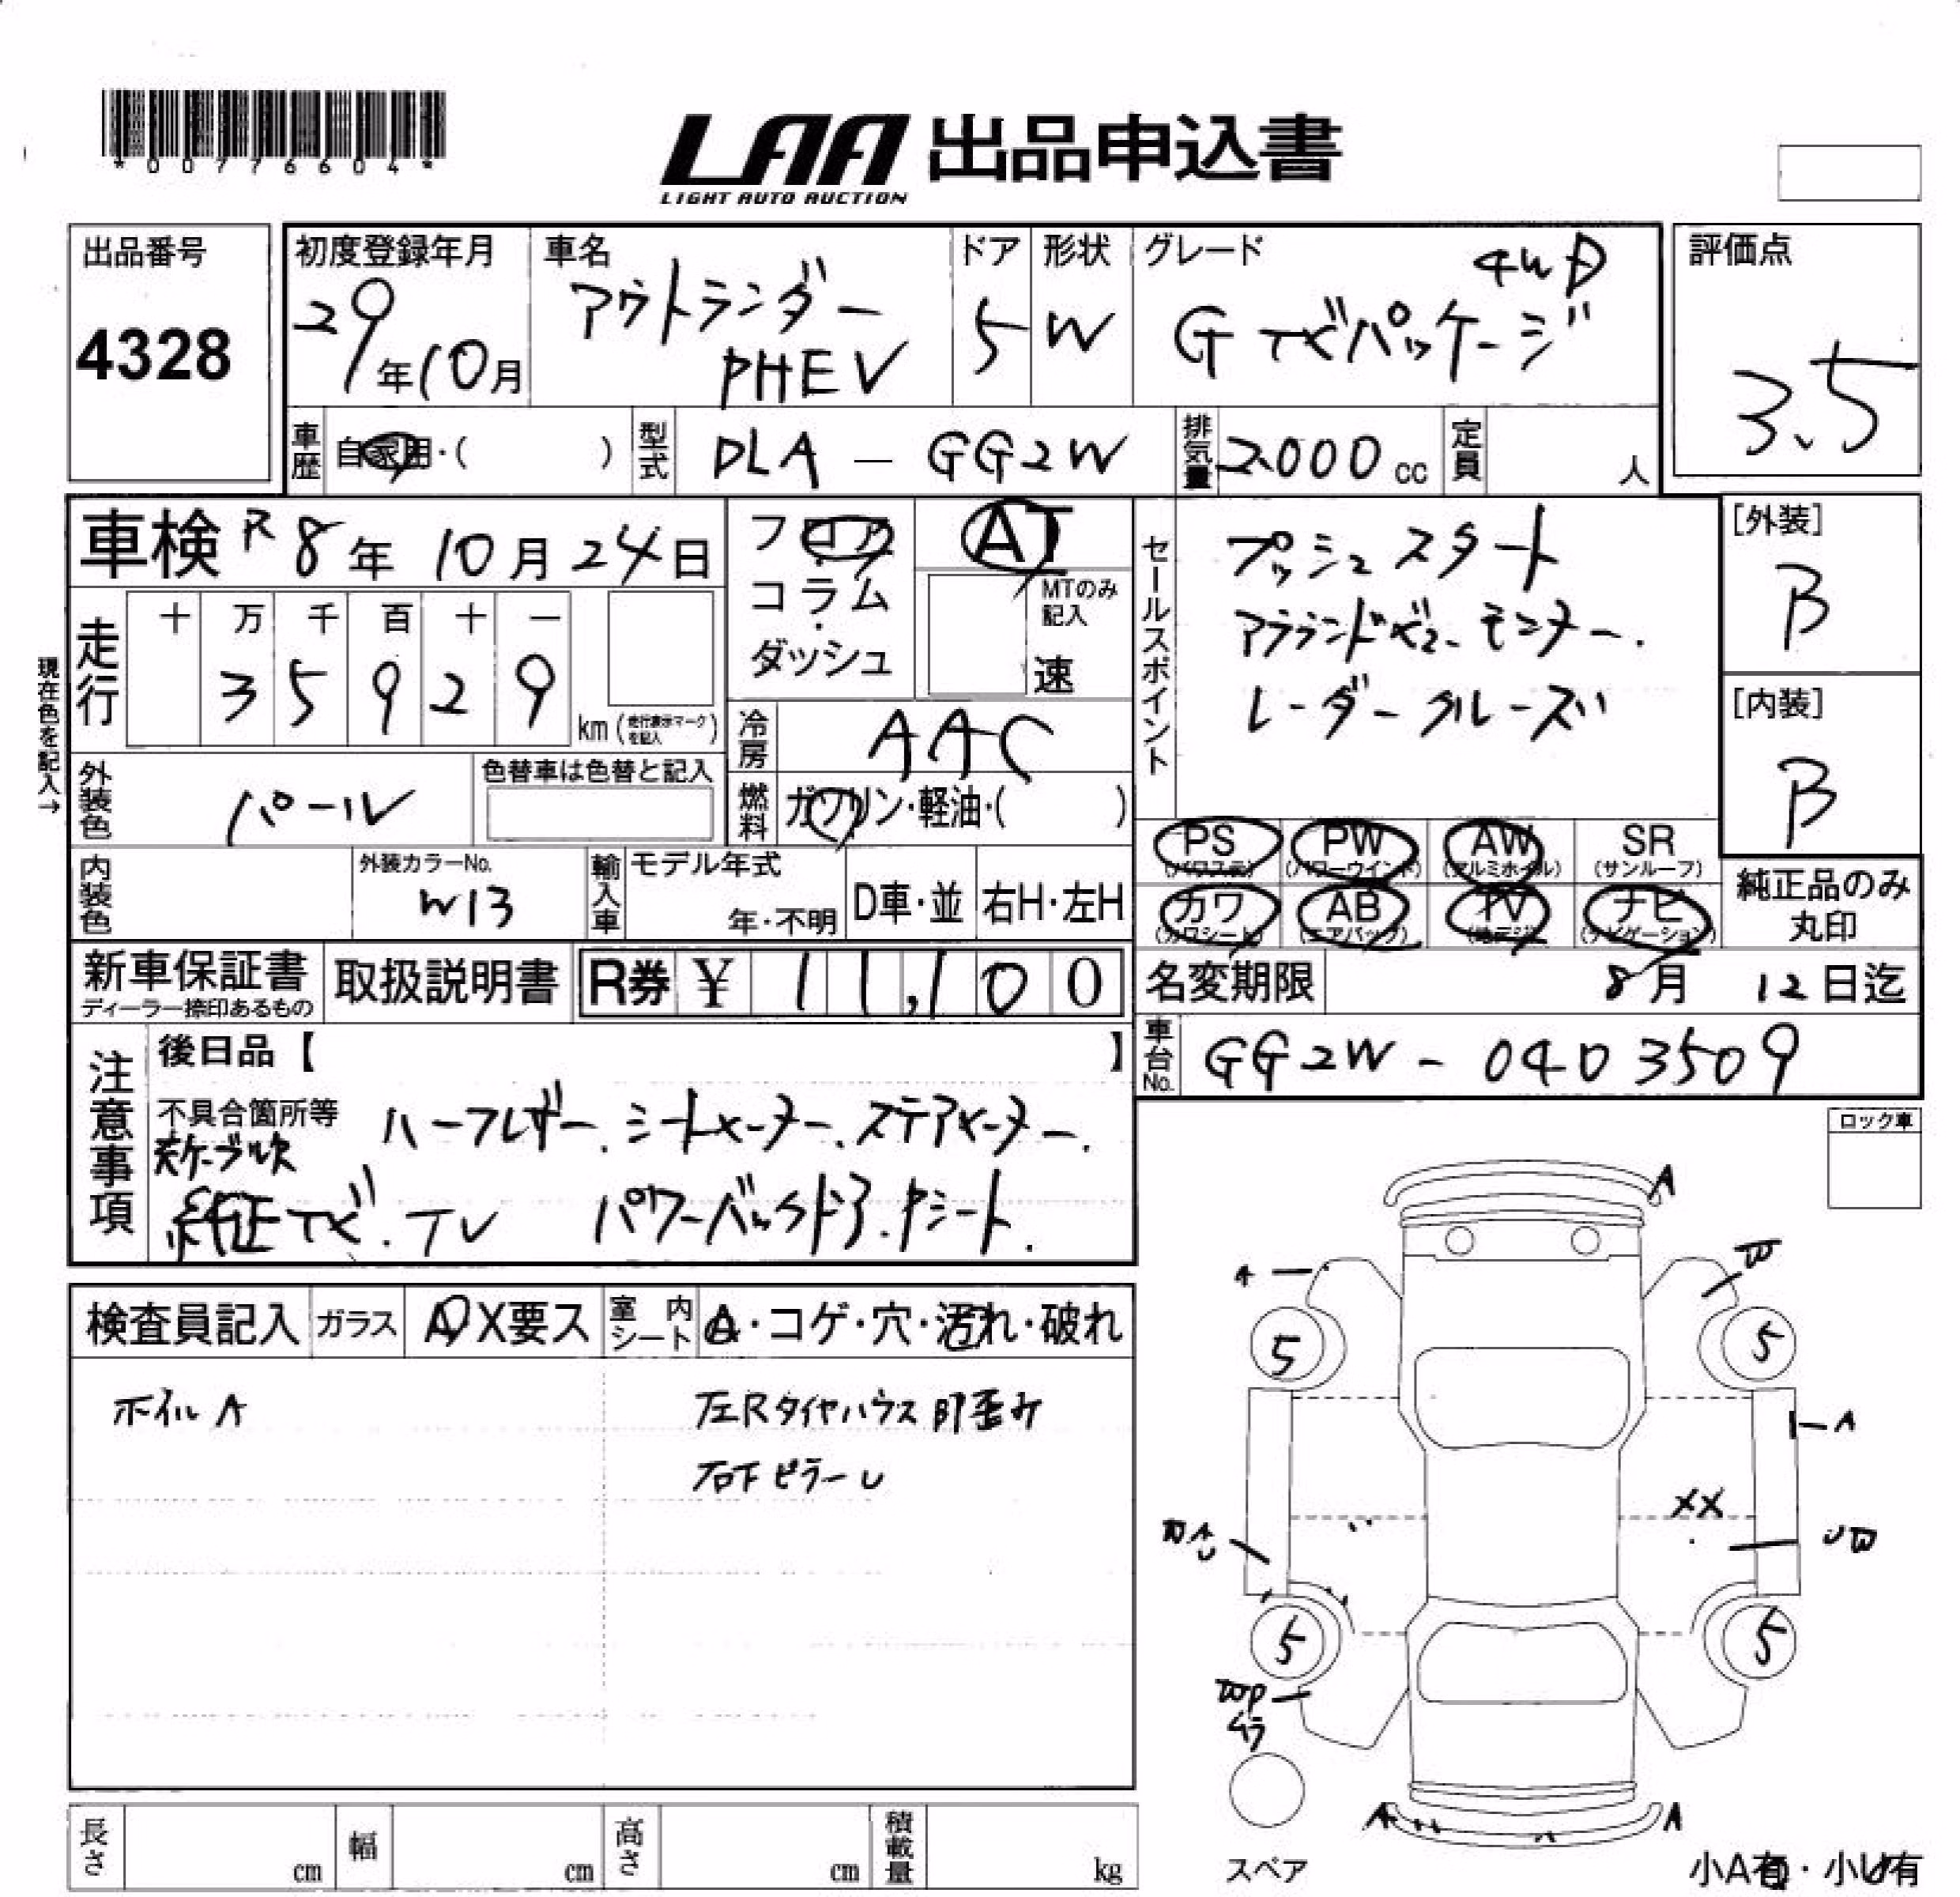 *00776604*
LAA 出品申込書
LIGHT AUTO AUCTION
出品番号
4328
初度登録年月
29年10月
車名
アウトランダー
PHEV
ドア
5
形状
W
グレード
4WD
G ナビパッケージ
評価点
3.5
車歴 自家用・( )
型式 DLA - GG2W
排気量 2000 cc
定員 人
車検 R8年 10月 24日
走行
十 万 千 百 十 一
3 5 9 2 9
km(走行表示マークを記入)
現在色を記入→
フロア
・
コラム
・
ダッシュ
AT
MTのみ記入
速
冷房 AAC
燃料 ガソリン・軽油・( )
セールスポイント
プッシュスタート
アラウンドビューモニター.
レーダークルーズ
[外装]
B
[内装]
B
外装色 パール
色替車は色替と記入
内装色
外装カラーNo.
W13
輸入車
モデル年式
年・不明
D車・並
右H・左H
PS (パワステ)
PW (パワーウインド)
AW (アルミホイル)
SR (サンルーフ)
カワ (カワシート)
AB (エアバッグ)
TV (地デジ)
ナビ (ナビゲーション)
純正品のみ
丸印
新車保証書
ディーラー捺印あるもの
取扱説明書
R券 ¥ 11,100
名変期限 8月 12日迄
車台No. GG2W - 0403509
注意事項
後日品【 】
不具合箇所等 ハーフレザー.シートヒーター.ステアヒーター.
充ケーブル欠
純正ナビ.TV パワーバックドア.Pシート.
ロック車
検査員記入
ガラス A・X要ス
室内シート A・コゲ・穴・汚れ・破れ
ホイル A
左Rタイヤハウス部歪み
右Fピラー U
A
A
W
5
5
A
XX
UW
5
5
A
A
スペア
小A有・小U有
長さ cm
幅 cm
高さ cm
積載量 kg